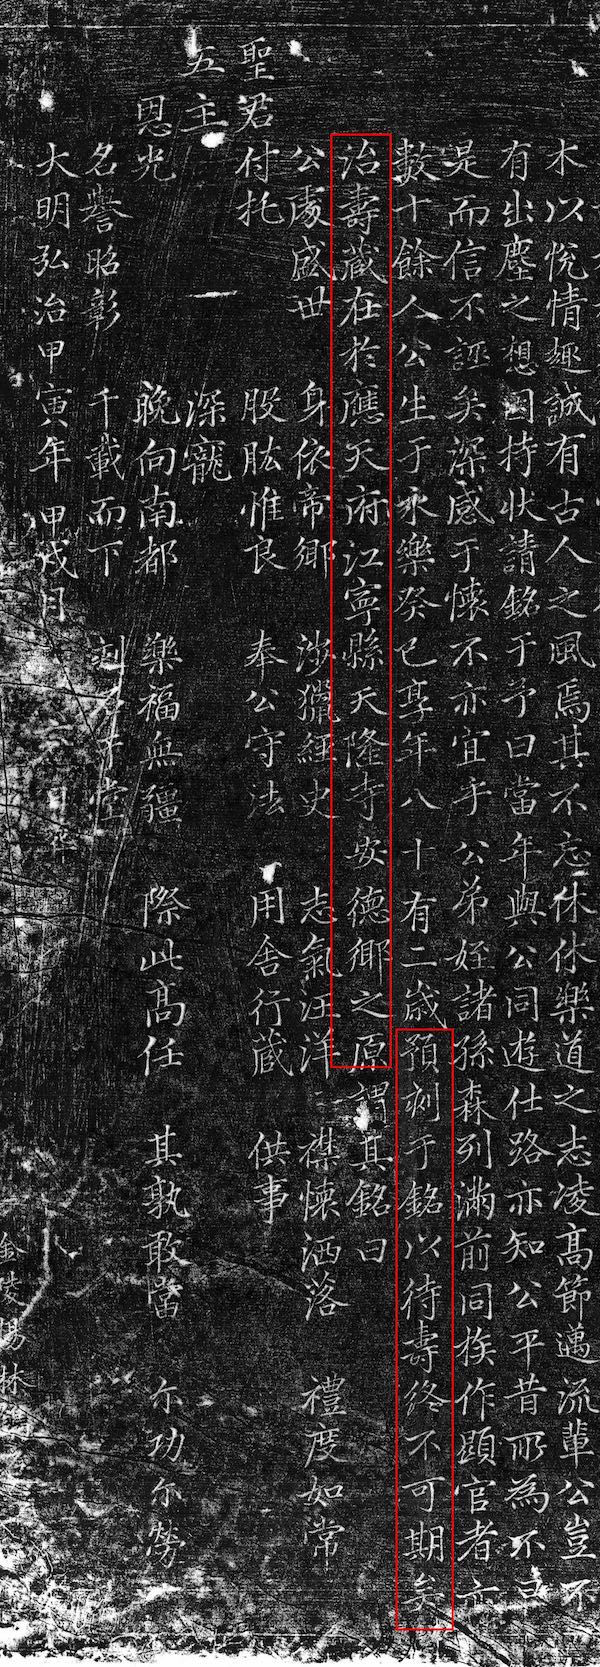 木以悅情趣誠有古人之風焉其不忘休休樂道之志凌高節邁流輩公豈不
有出塵之想因持狀請銘于予曰當年與公同遊仕路亦知公平昔所為不
是而信不誣矣深感于懷不亦宜乎公弟姪諸孫森列滿前同族作顯官者亦
數十餘人公生于永樂癸巳享年八十有二歲預刻于銘以待壽終不可期矣
治壽藏在於應天府江寧縣天隆寺安德鄉之原謂其銘曰
公處盛世 身依帝鄉 涉獵經史 志氣汪洋 襟懷洒落 禮度如常
聖君付托 股肱惟良 奉公守法 用舍行藏 供事
五主 一 深寵
恩光 晚向南都 樂福無疆 際此高任 其孰敢當 尔功尔勞
名譽昭彰 千載而下 刻 堂
大明弘治甲寅年甲戌月 日
金陵楊林